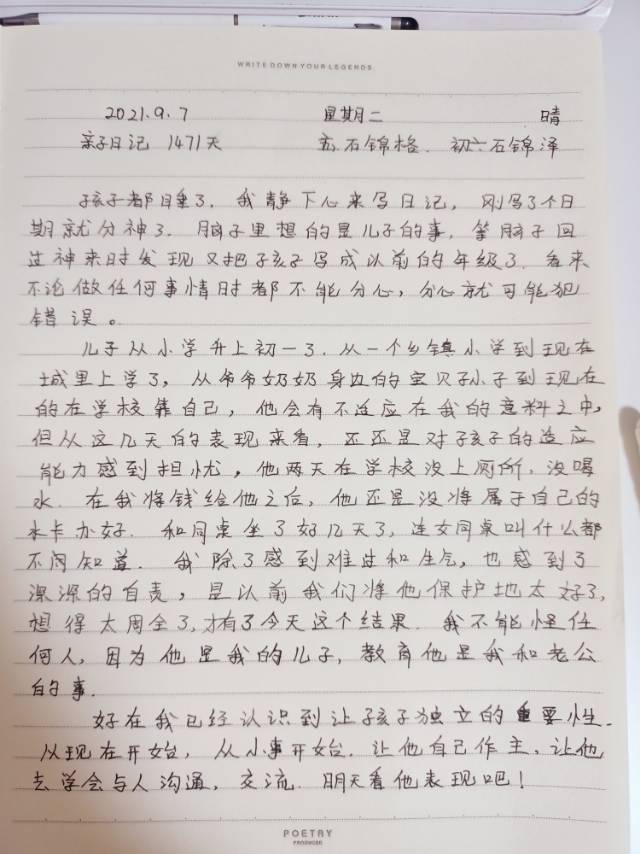 WRITE DOWN YOUR LEGENDS
2021.9.7 星期二 晴
亲子日记 1471天 五石锦格. 初六石锦泽
孩子都睡了. 我静下心来写日记, 刚写了个日
期就分神了. 脑子里想的是儿子的事, 等脑子回
过神来时发现又把子孩子写成以前的年级了. 看来
不论做任何事情时都不能分心, 分心就可能犯
错误。
儿子从小学升上初一了. 从一个乡镇小学到现在
城里上学了, 从爷爷奶奶身边的宝贝孙子到现在
的在学校靠自己, 他会有不适应在我的意料之中,
但从这几天的表现来看, 还还是对孩子的适应
能力感到担忧, 他两天在学校没上厕所, 没喝
水. 在我将钱给他之后, 他还是没将属于自己的
水卡办好. 和同桌坐了好几天了, 连女同桌叫什么都
不闷知道. 我除了感到难过和生气, 也感到了
深深的自责, 是以前我们将他保护地太好了,
想得太周全了, 才有了今天这个结果. 我不能怪任
何人, 因为他是我的儿子, 教育他是我和老公
的事.
好在我已经认识到让孩子独立的重要性.
从现在开始, 从小事开始. 让他自己作主, 让他
去学会与人沟通, 交流. 明天看他表现吧!
POETRY